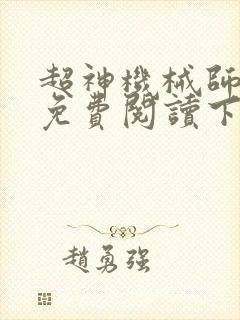 超神機械師
免費閱讀下
趙勇强